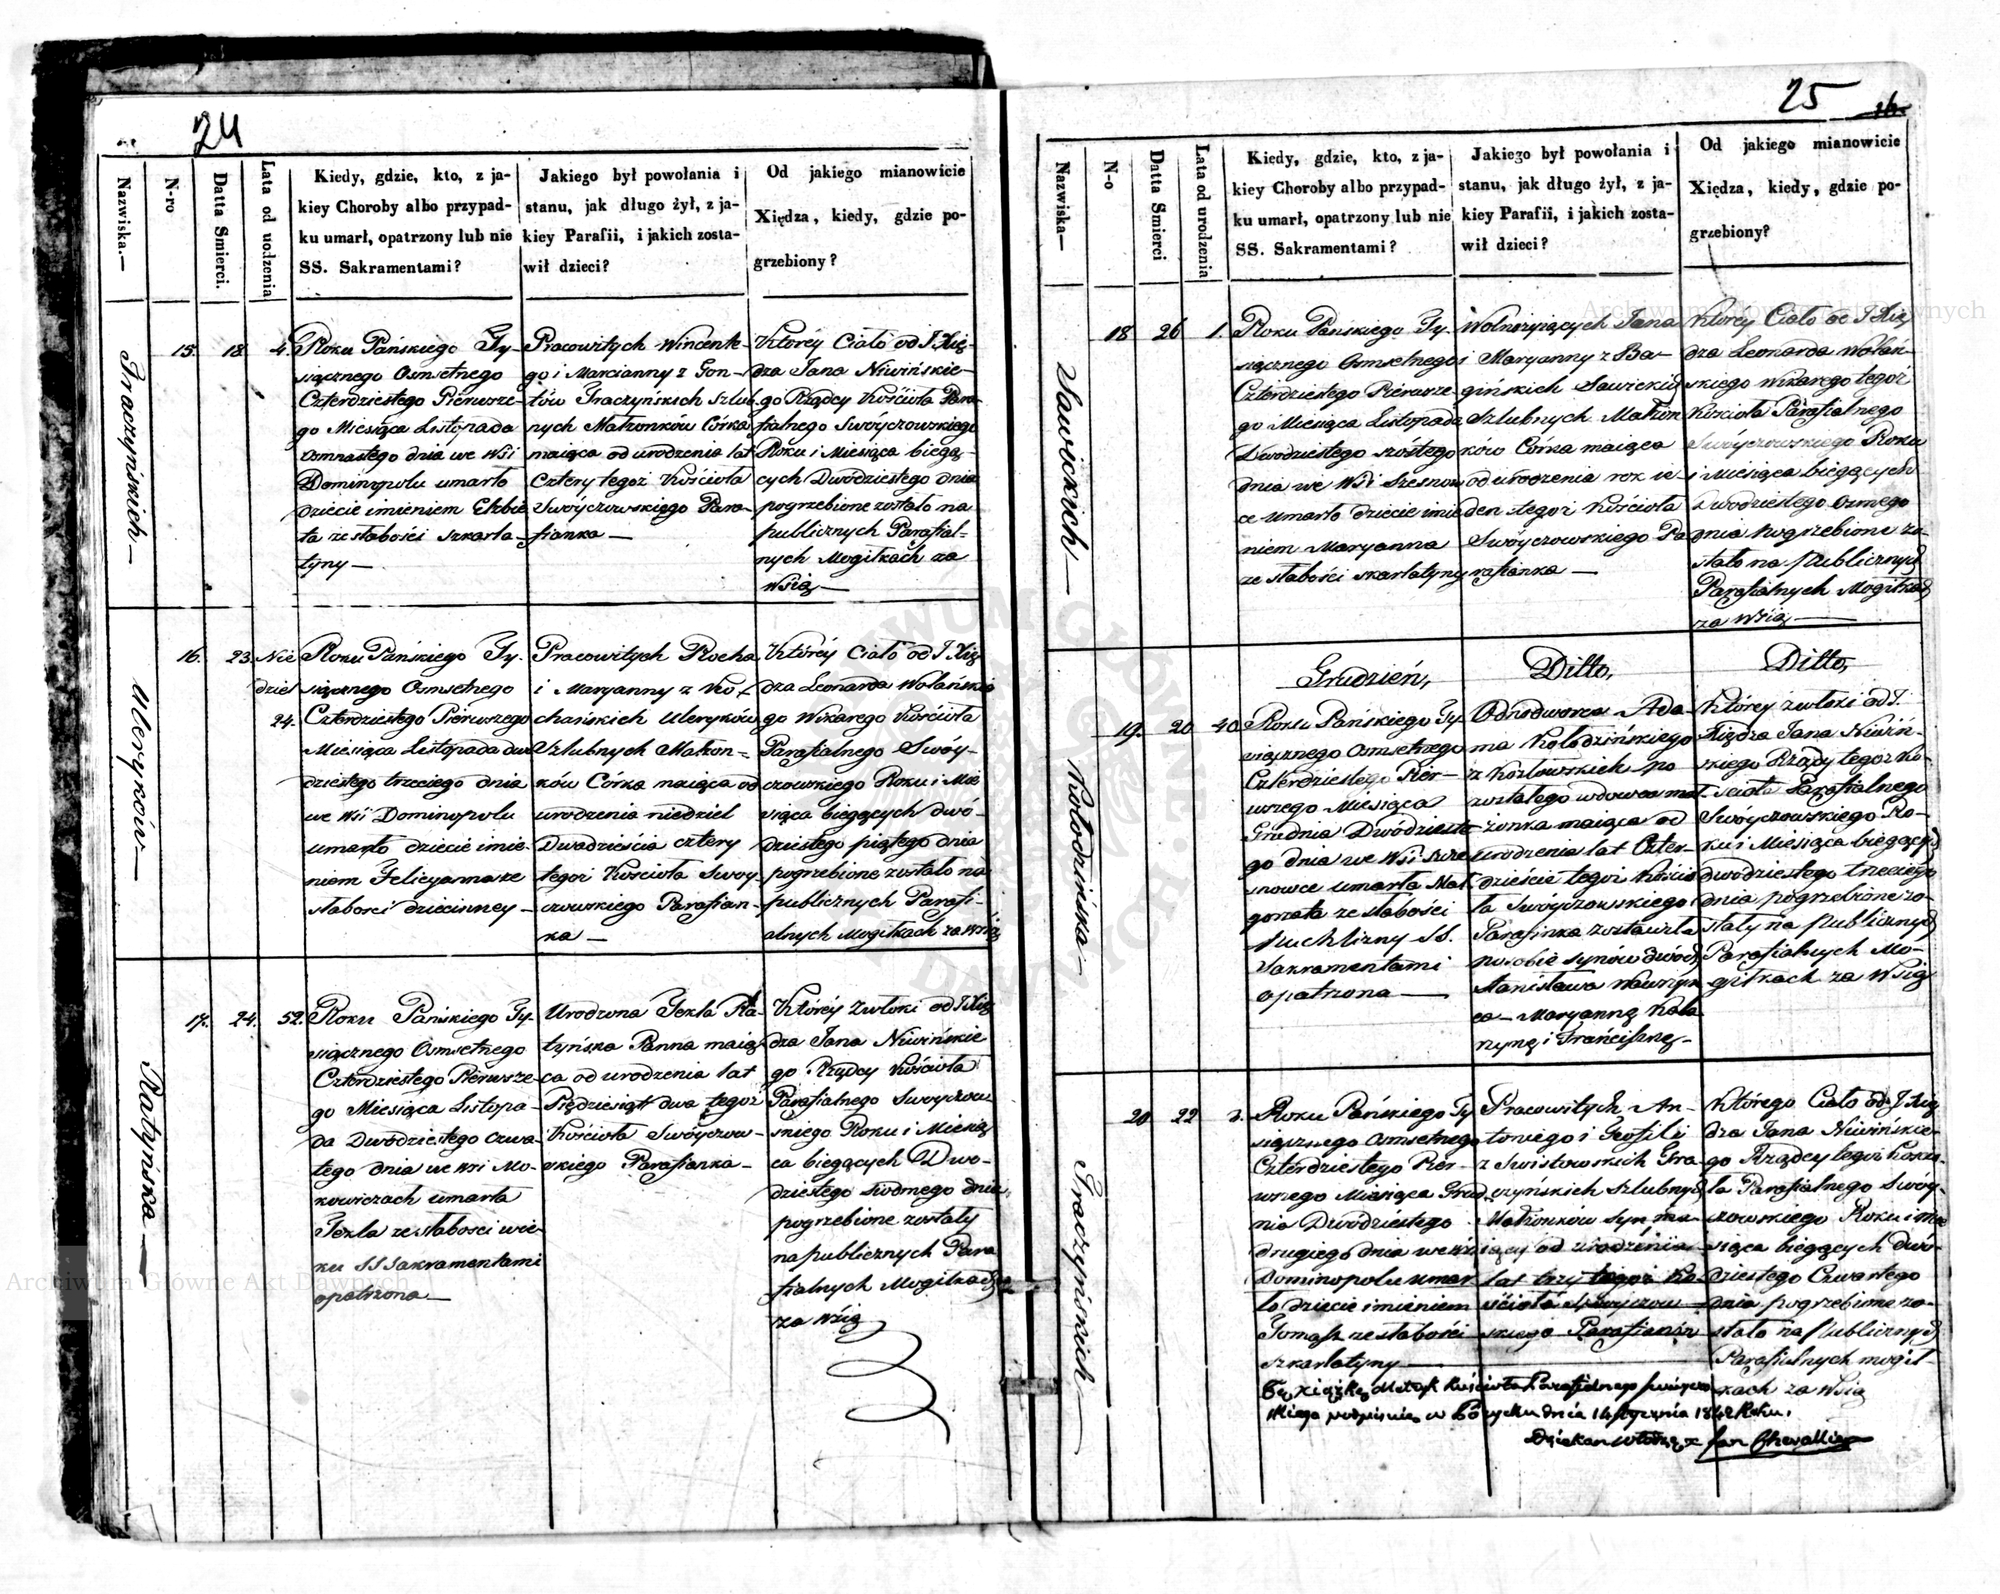 24
Nazwiska.—
N-ro
Datta Smierci.
Lata od uodzenia
Kiedy, gdzie, kto, z ja-
kiey Choroby albo przypad-
ku umarł, opatrzony lub nie
SS. Sakramentami?
Jakiego był powołania i
stanu, jak długo żył, z ja-
kiey Parafii, i jakich zosta-
wił dzieci?
Od jakiego mianowicie
Xiędza, kiedy, gdzie po-
grzebiony?
Graczyńskich—
15.
18
4.
Roku Pańskiego Ty-
siącznego Osmsetnego
Czterdziestego Pierwsze-
go Miesiąca Listopada
Osmnastego dnia we Wsi
Dominopolu umarło
dziecie imieniem Elzbie
ta ze słabości szkarla-
tyny—
Pracowitych Wincente-
go i Marcianny z Gon-
tów Graczyńskich Szlub-
nych Małzonków Córka
maiąca od urodzenia lat
Cztery tegoż Kościoła
Swóyczowskiego Para-
fianka—
Którey Ciało od J. Xię-
dza Jana Niwińskie-
go Rządcy Kościoła Para-
fialnego Swóyczowskiego
Roku i Miesiąca biegą-
cych Dwódziestego dnia
pogrzebione zostało na
publicznych Parafial-
nych Mogiłkach za
Wsią—
Uleryków—
16.
23.
Nie
dziel
24.
Roku Pańskiego Ty-
siącznego Osmsetnego
Czterdziestego Pierwszego
Miesiąca Listopada dwu
dziestego trzeciego dnia
we Wsi Dominopolu
umarło dziecie imie-
niem Felicyanna ze
słabosci dziecinney—
Pracowitych Rocha
i Maryanny z Ko-
chańskich Uleryków
Szlubnych Małzon-
ków Córka maiąca od
urodzenia niedziel
Dwadzieścia cztery
tegoż Kościoła Swoy-
czowskiego Parafian-
ka—
Którey Ciało od J. Xię
dza Leonarda Wolańskie
go Wikarego Kościoła
Parafialnego Swóy-
czowskiego Roku i Mie
siąca biegących dwó-
dziestego piątego dnia
pogrzebione zostało na
publicznych Parafi-
alnych Mogiłkach za Wsią
Ratyńska—
17.
24.
52.
Roku Pańskiego Ty-
siącznego Osmsetnego
Czterdziestego Pierwsze-
go Miesiąca Listopa-
da Dwódziestego czwa-
tego dnia we Wsi Mo-
kowiczach umarła
Tekla ze słabosci wie-
ku SS Sakramentami
opatrzona—
Urodzona Tekla Ra-
tyńska Panna maią-
ca od urodzenia lat
Pięćdziesiąt dwa tegoż
Kościoła Swóyczow-
skiego Parafianka—
Którey Zwłoki od J. Xię
dza Jana Niwińskie
go Rządcy Kościoła
Parafialnego Swoyczow
skiego Roku i Miesią
ca biegących Dwó-
dziestego siódmego dnia
pogrzebione zostały
na publicznych Para
fialnych Mogiłkach
za Wsią
25
Nazwiska—
N-o
Datta Smierci
Lata od urodzenia
Kiedy, gdzie, kto, z ja-
kiey Choroby albo przypad-
ku umarł, opatrzony lub nie
SS. Sakramentami?
Jakiego był powołania i
stanu, jak długo żył, z ja-
kiey Parafii, i jakich zosta-
wił dzieci?
Od jakiego mianowicie
Xiędza, kiedy, gdzie po-
grzebiony?
Sawickich—
18
26
1.
Roku Pańskiego Ty-
siącznego Osmsetnego
Czterdziestego Pierwsze-
go Miesiąca Listopada
Dwódziestego szóstego
dnia we Wsi Szesnow
ce umarło dziecie imie
niem Maryanna
ze słabości szkarlatyny
Wolnożyiących Jana
i Maryanny z Ba-
gińskich Sawickich
Szlubnych Małzon
ków Córka maiąca
od urodzenia rok ie-
den tegoż Kościoła
Swóyczowskiego Pa
rafianka—
Którey Ciało od J Xię
dza Leonarda Wolań-
skiego Wikarego tegoż
Kościoła Parafialnego
Swóyczowskiego Roku
i Miesiąca biegących
Dwódziestego Osmego
dnia pogrzebione zo-
stało na publicznych
Parafialnych Mogiłkach
za Wsią—
Grudzień,
Ditto,
Ditto,
Kołodzińska—
19.
20
40
Roku Pańskiego Ty
siącznego Osmsetnego
Czterdziestego Pier-
wszego Miesiąca
Grudnia Dwódzieste
go dnia we Wsi Szze
snowce umarła Mał
gorzata ze słabości
puchliny SS.
Sakramentami
opatrzona—
Odnodworca Ada-
ma Kołodzińskiego
z Kozłowskich po
zostałego wdowca mał-
żonka maiąca od
urodzenia lat Czter-
dzieście tegoż Kościo
ła Swóyczowskiego
Parafianka zostawiła
po sobie synów dwóch
Stanisława Wawrzyń
ca— Maryannę Kata
rzynę i Franciszkę—
Którey zwłoki od J.
Xiędza Jana Niwiń-
skiego Rządcy tegoż Ko-
ścioła Parafialnego
Swóyczowskiego Ro-
ku i Miesiąca biegących
dwódziestego trzeciego
dnia pogrzebione zo-
stały na publicznych
Parafialnych Mo-
giłkach za Wsią
Graczyńskich—
20
22
3.
Roku Pańskiego Ty
siącznego Osmsetnego
Czterdziestego Pier-
wszego Miesiąca Grud-
nia Dwódziestego
drugiego dnia we Wsi
Dominopolu umar
ło dziecie imieniem
Tomasz ze słabości
szkarlatyny—
Pracowitych An-
toniego i Teofili
z Swistowskich Gra-
czyńskich Szlubnych
Małzonków Syn ma-
iący od urodzenia
lat trzy tegoż Ko-
ścioła Swóyczow—
skiego Parafianin
Którego Ciało od J. Xię
dza Jana Niwińskie-
go Rządcy tegoż Kościo-
ła Parafialnego Swóy-
czowskiego Roku i Mie
siąca biegących dwó-
dziestego Czwartego
dnia pogrzebione zo-
stało na publicznych
Parafialnych mogił-
kach za Wsią
Tę xiążkę Metryk Kościoła Parafialnego Swóyczo
skiego podpisuię w dnia 14 Stycznia 1842 Roku.
Dziekan Jan
Archiwum Główne Akt Dawnych
Archiwum Główne Akt Dawnych